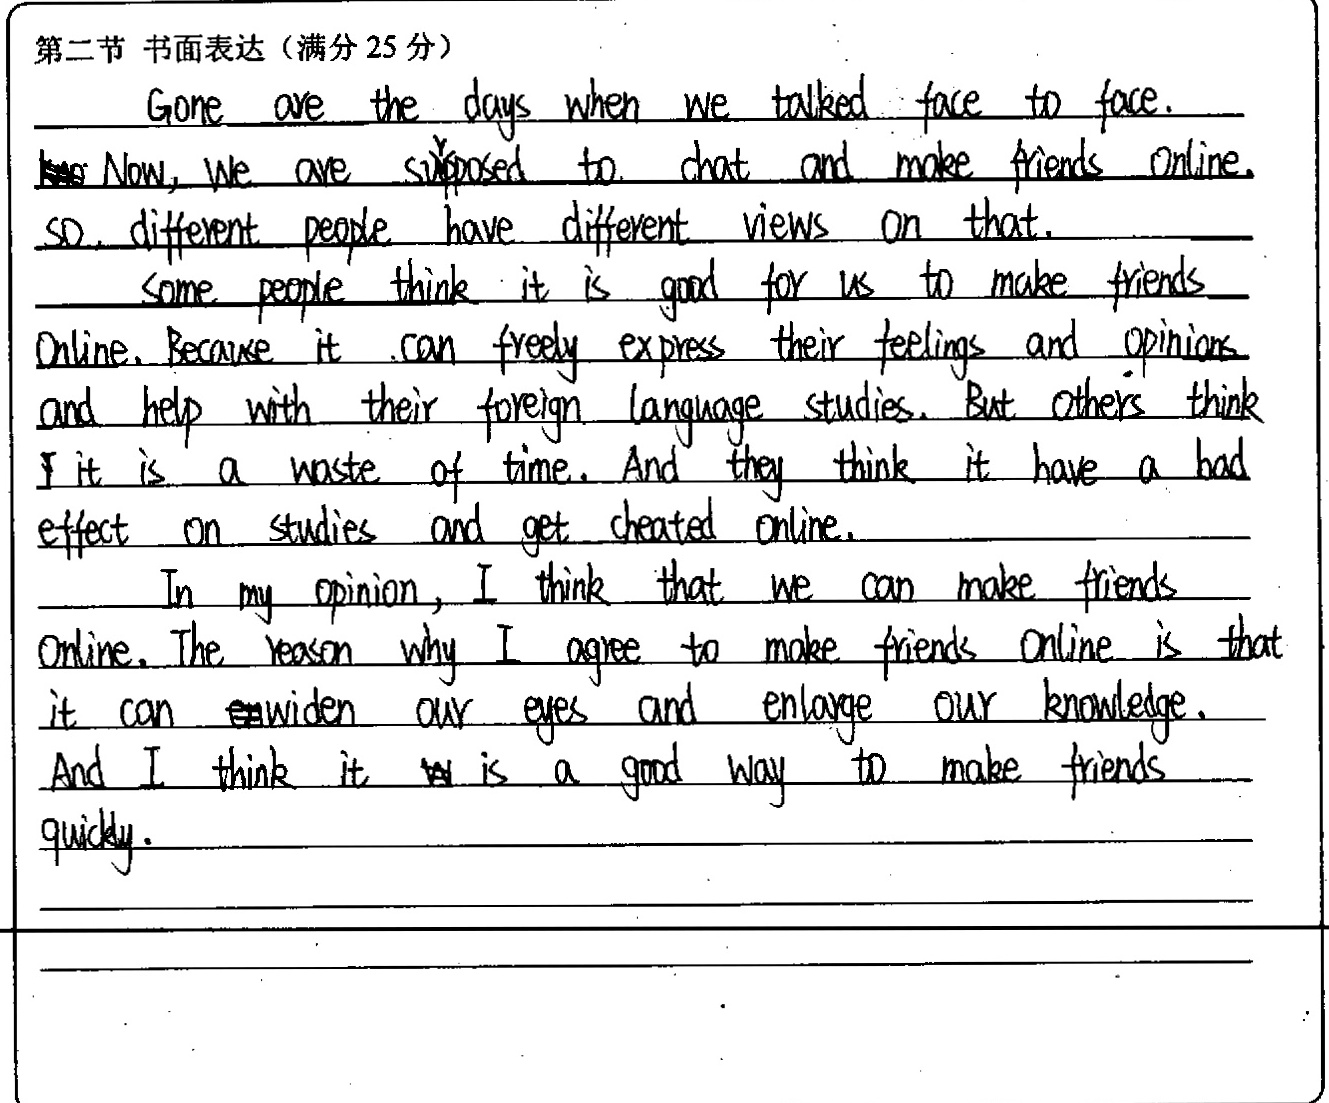 第二节 书面表达（满分 25 分）
Gone are the days when we talked face to face.
Now, We are supposed to chat and make friends online.
so. different people have different views on that.
some people think it is good for us to make friends
Online. Because it can freely express their feelings and opinions
and help with their foreign language studies. But others think
it is a waste of time. And they think it have a bad
effect on studies and get cheated online.
In my opinion, I think that we can make friends
Online. The reason why I agree to make friends online is that
it can widen our eyes and enlarge our knowledge.
And I think it is a good way to make friends
quickly.